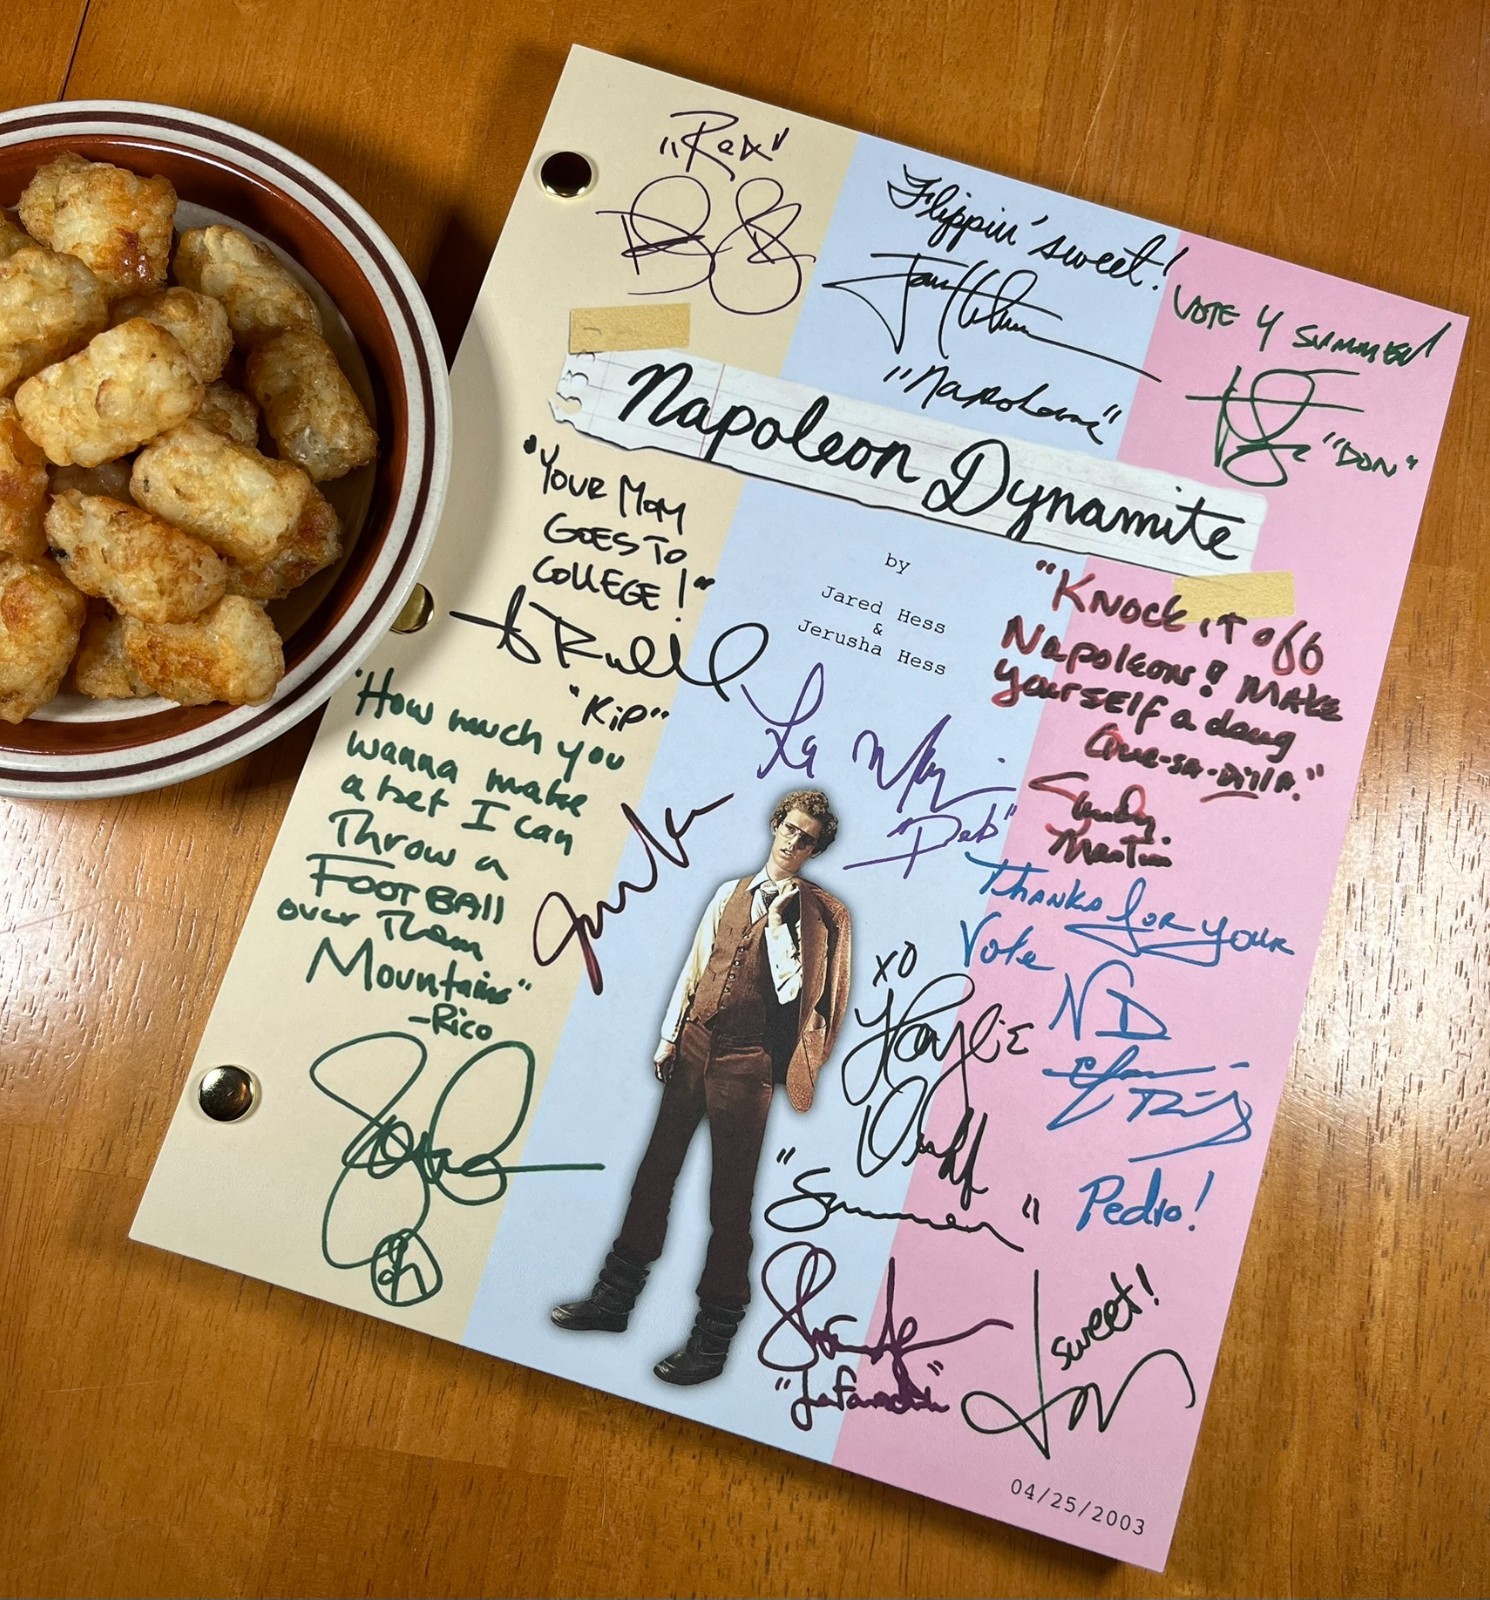 "Rex"
Flippin' sweet!
"Napoleon"
VOTE 4 SUMMER!
"DON"
Napoleon Dynamite
by
Jared Hess
&
Jerusha Hess
"YOUR MOM
GOES TO
COLLEGE!"
"KiP"
"KNOCK iT off
NapolEon! MAKE
YOURSElf a dang
Que-sa-Dilla."
Sandy
Martin
"How much you
wanna make
a bet I can
Throw a
FOOTBALL
over Them
Mountains"
-Rico
"Deb"
THANKS for YOUR
Vote
ND
Pedro!
XO
Haylie
Duff
"Summer"
"Lafawnduh"
sweet!
04/25/2003